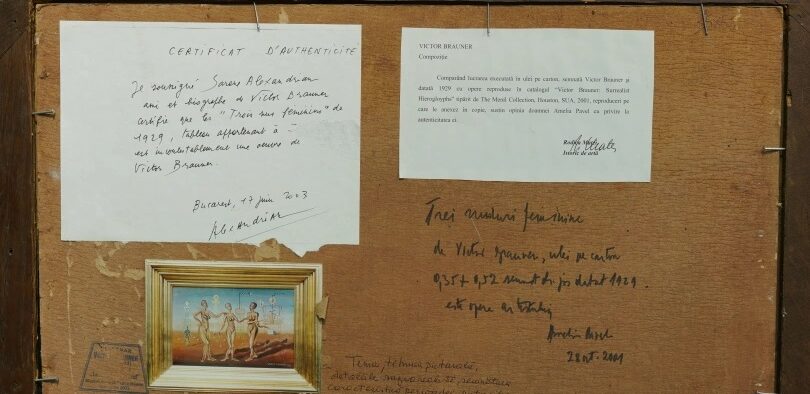 CERTIFICAT D'AUTHENTICITE
Je soussigné Sarane Alexandrian
ami et biographe de Victor Brauner
certifie que les "Trois nus feminins" de
1929, tableau appartenant à
est incontestablement une oeuvre de
Victor Brauner.
Bucarest, 17 juin 2003
Alexandrian
VICTOR BRAUNER
Compoziție
Comparând lucrarea executată în ulei pe carton, semnată Victor Brauner și
datată 1929 cu opere reproduse în catalogul "Victor Brauner: Surrealist
Hieroglyphs" apărut de The Menil Collection, Houston, SUA, 2001, reproduceri pe
care le anexez în copie, susțin opinia doamnei Amelia Pavel cu privire la
autenticitatea ei.
Istoric de artă
Trei nuduri feminine
de Victor Brauner, ulei pe carton
0,35 + 0,52 semnat dr. jos datat 1929.
este opera
Amelia Pavel
2001
Tema, tehnica picturală,